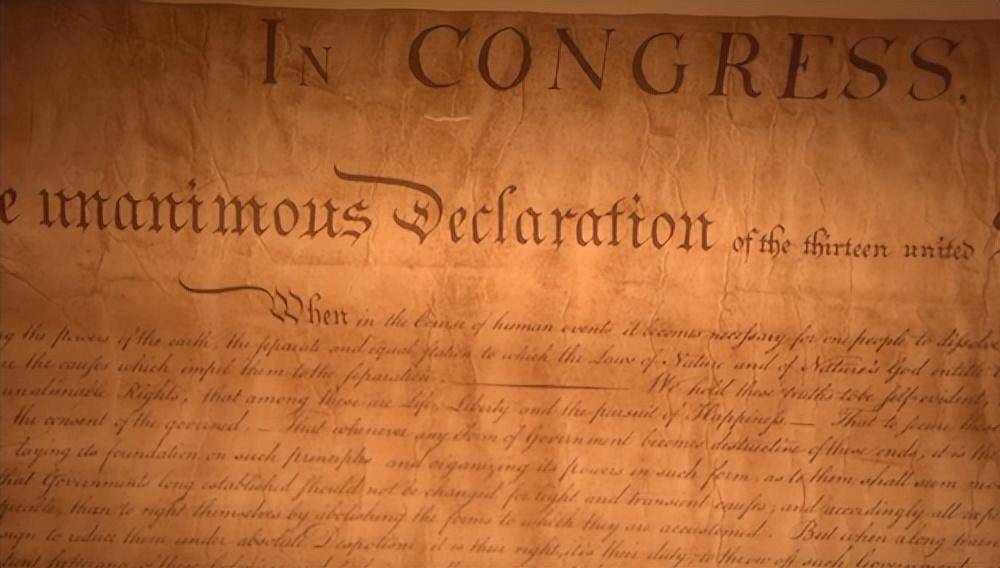 In CONGRESS.
e unanimous Declaration of the thirteen united
When in the Course of human events it becomes necessary for one people to dissolve
ng the powers of the earth, the separate and equal station to which the Laws of Nature and of Nature's God entitle
re the causes which impel them to the separation. We hold these truths to be self-evident,
unalienable Rights, that among these are Life, Liberty and the pursuit of Happiness.— That to secure these
the consent of the governed, — That whenever any Form of Government becomes destructive of these ends, it is the
laying its foundation on such principles and organizing its powers in such form, as to them shall seem mo
that Governments long established should not be changed for light and transient causes; and accordingly all expe
than to right themselves by abolishing the forms to which they are accustomed. But when a long train
sign to reduce them under absolute Despotism, it is their right, it is their duty, to throw off such Government